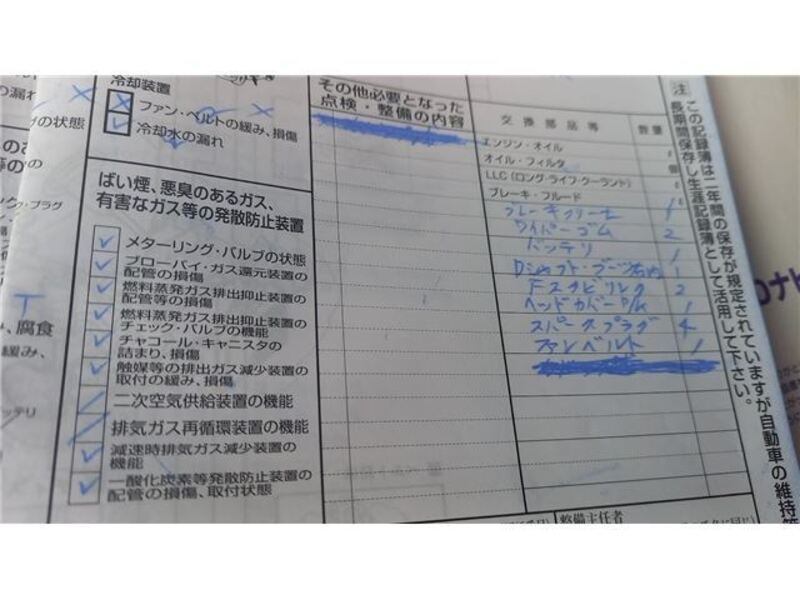 冷却装置
ファン・ベルトの緩み、損傷
冷却水の漏れ
ばい煙、悪臭のあるガス、
有害なガス等の発散防止装置
メターリング・バルブの状態
ブローバイ・ガス還元装置の
配管の損傷
燃料蒸発ガス排出抑止装置の
配管等の損傷
燃料蒸発ガス排出抑止装置の
チェック・バルブの機能
チャコール・キャニスタの
詰まり、損傷
触媒等の排出ガス減少装置の
取付の緩み、損傷
二次空気供給装置の機能
排気ガス再循環装置の機能
減速時排気ガス減少装置の
機能
一酸化炭素等発散防止装置の
配管の損傷、取付状態
の漏れ
の状態
プラグ
、腐食
緩み、
その他必要となった
点検・整備の内容
交換部品等 数量
エンジン・オイル
オイル・フィルタ
LLC(ロング・ライフ・クーラント)
ブレーキ・フルード
ブレーキクリーナ 1
ワイパーゴム 2
バッテリ 1
Dシャフト・ブーツ右内 1
Fスタビリンク 2
ヘッドカバーP/K 1
スパークプラグ 4
ファンベルト 1
整備主任者
注 この記録簿は二年間の保存が規定されていますが自動車の維持
長期間保存し生涯記録簿として活用して下さい。